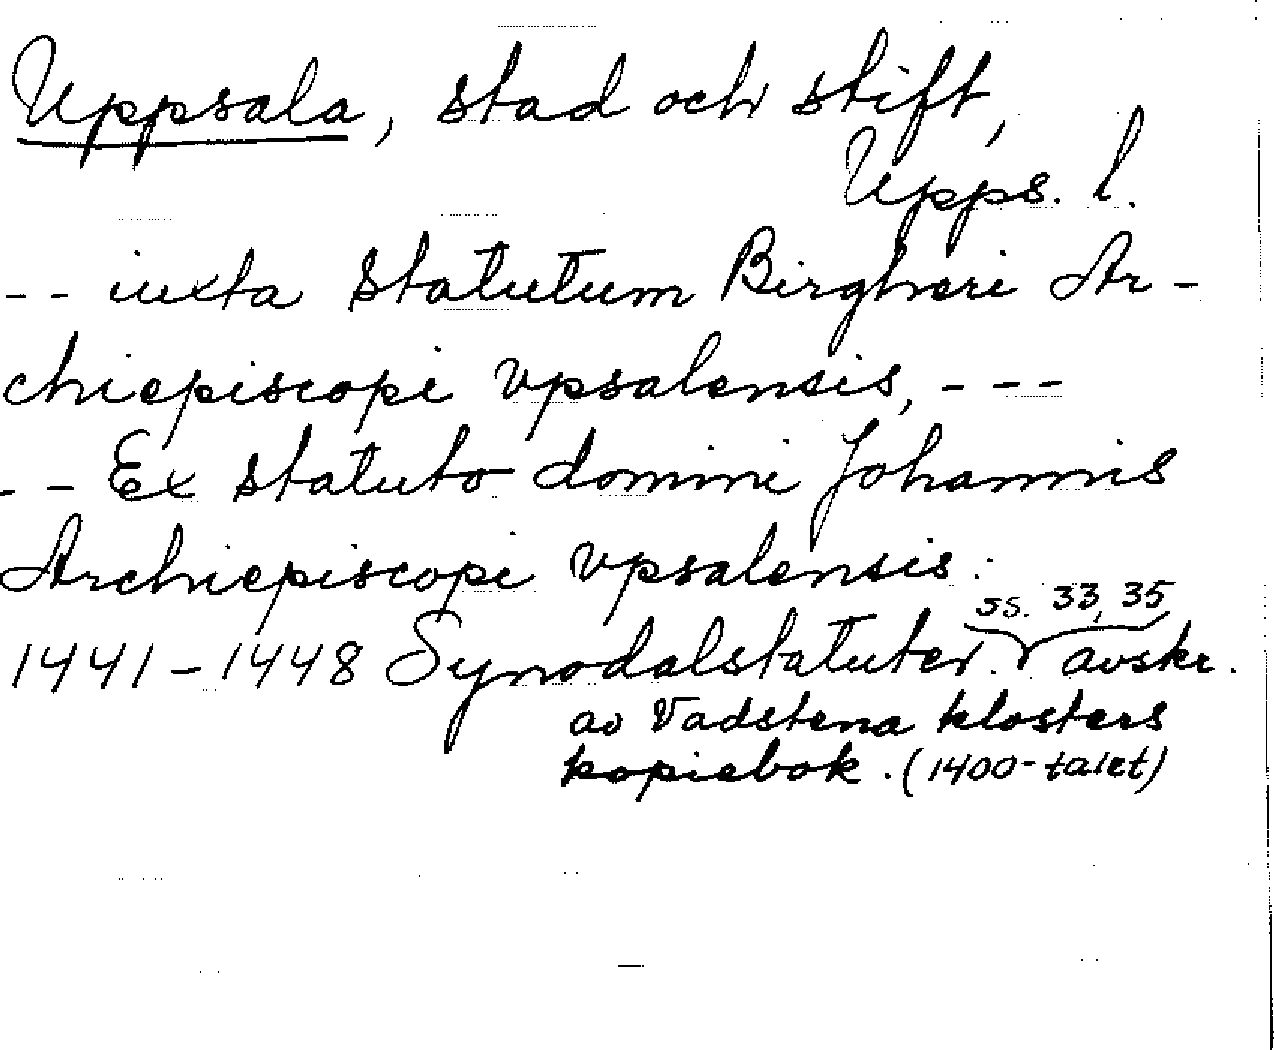 Uppsala, stad och stift,
Upps. l.
-- iuxta statutum Birgheri Ar-
chiepiscopi vpsalensis, ---
-- Ex statuto domini Johannis
Archiepiscopi vpsalensis.
ss. 33, 35
1441-1448 Synodalstatuter. avskr.
av Vadstena klosters
kopiebok. (1400-talet)